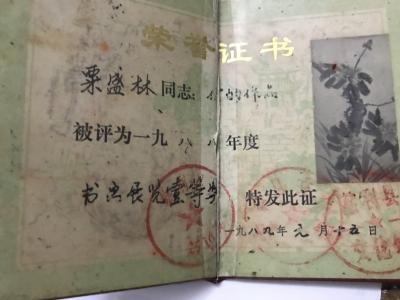 荣誉证书
栗盛林同志: 你的作品
被评为一九八八年度
书画展览壹等奖 特发此证
一九八九年元月十五日